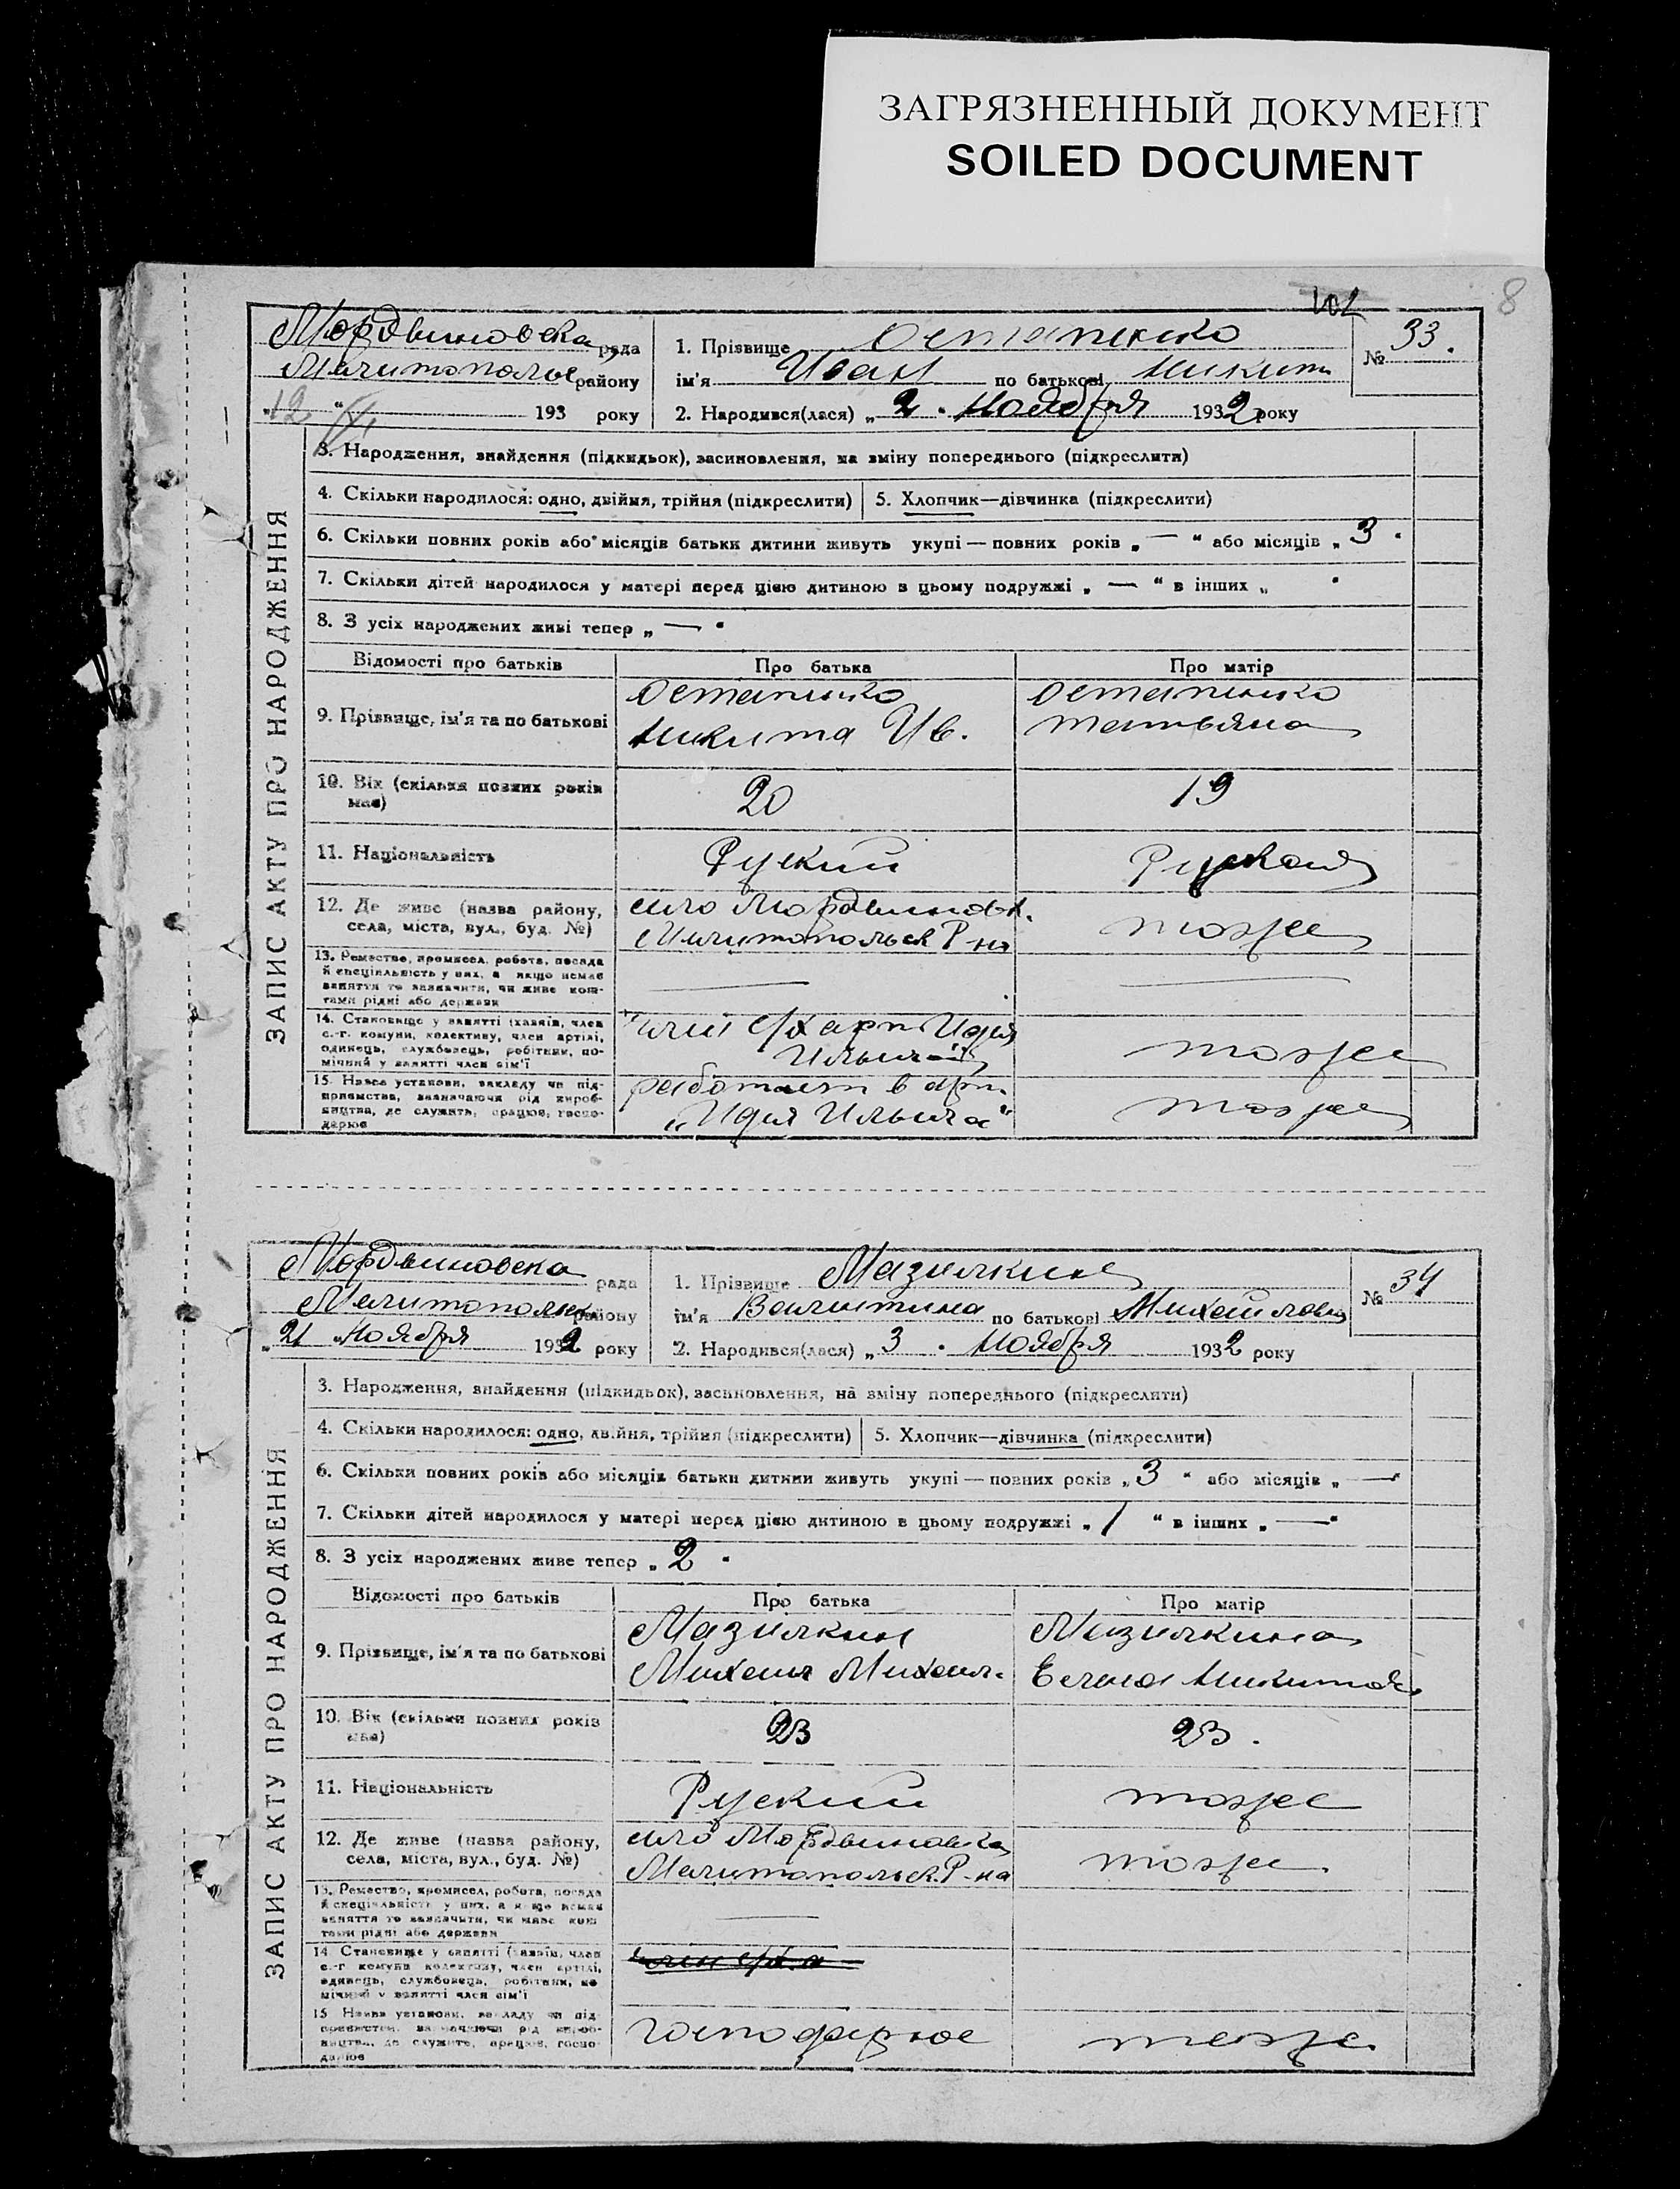 ЗАГРЯЗНЕННЫЙ ДОКУМЕНТ
SOILED DOCUMENT
8
Мордвиновска рада
Мелитопольс району
12 193 року
1. Прізвище Остапенко
ім'я Иван по батькові Никит
2. Народився(лася) „2. Ноября 1932 року
№ 33.
ЗАПИС АКТУ ПРО НАРОДЖЕННЯ
3. Народження, знайдення (підкидьок), засиновлення, на зміну попереднього (підкреслити)
4. Скільки народилося: одно, двійня, трійня (підкреслити)
5. Хлопчик—дівчинка (підкреслити)
6. Скільки повних років або місяців батьки дитини живуть укупі — повних років „ — “ або місяців „ 3 “
7. Скільки дітей народилося у матері перед цією дитиною в цьому подружжі „ — “ в інших „ “
8. З усіх народжених живі тепер „ — “
Відомості про батьків
Про батька
Про матір
9. Прізвище, ім'я та по батькові
Остапенко
Никита Ив.
Остапенко
Татьяна
10. Вік (скільки повних років має)
20
19
11. Національність
Руский
Руская
12. Де живе (назва району, села, міста, вул., буд. №)
село Мордвиновк.
Мелитопольск Р-на
тоже
13. Ремество, промисел, робота, посада й спеціальність у них, а якщо немає заняття то зазначити, чи живе коштами рідні або держави
—
—
14. Становище у занятті (хазяїн, член с.-г. комуни, колективу, член артілі, одинець, службовець, робітник, помічний у занятті член сім'ї
член с/х арт Идея
Ильича
тоже
15. Назва установи, закладу чи підприємства, зазначаючи рід виробництва, де служить, працює, господарює
работает в арт.
„Идея Ильича“
тоже
Мордвиновска рада
Мелитопольск району
21 Ноября 1932 року
1. Прізвище Мазилкина
ім'я Валентина по батькові Михайловна
2. Народився(лася) „3. Ноября 1932 року
№ 34
ЗАПИС АКТУ ПРО НАРОДЖЕННЯ
3. Народження, знайдення (підкидьок), засиновлення, на зміну попереднього (підкреслити)
4. Скільки народилося: одно, двійня, трійня (підкреслити)
5. Хлопчик—дівчинка (підкреслити)
6. Скільки повних років або місяців батьки дитини живуть укупі — повних років „ 3 “ або місяців „ — “
7. Скільки дітей народилося у матері перед цією дитиною в цьому подружжі „ 1 “ в інших „ — “
8. З усіх народжених живе тепер „ 2 “
Відомості про батьків
Про батька
Про матір
9. Прізвище, ім'я та по батькові
Мазилкин
Михаил Михаил.
Мазилкина
Елена Никитов.
10. Вік (скільки повних років має)
23
23.
11. Національність
Руский
тоже
12. Де живе (назва району, села, міста, вул., буд. №)
село Мордвиновка
Мелитопольск. Р-на
тоже
13. Ремество, промисел, робота, посада й спеціальність у них, а якщо немає заняття то зазначити, чи живе коштами рідні або держави
—
14. Становище у занятті (хазяїн, член с.-г комуни колективу, член артілі, одинець, службовець, робітник, помічний у занятті член сім'ї
член с/х а
15. Назва установи, закладу чи підприємства, зазначаючи рід виробництва, де служить, працює, господарює
господарює
тоже